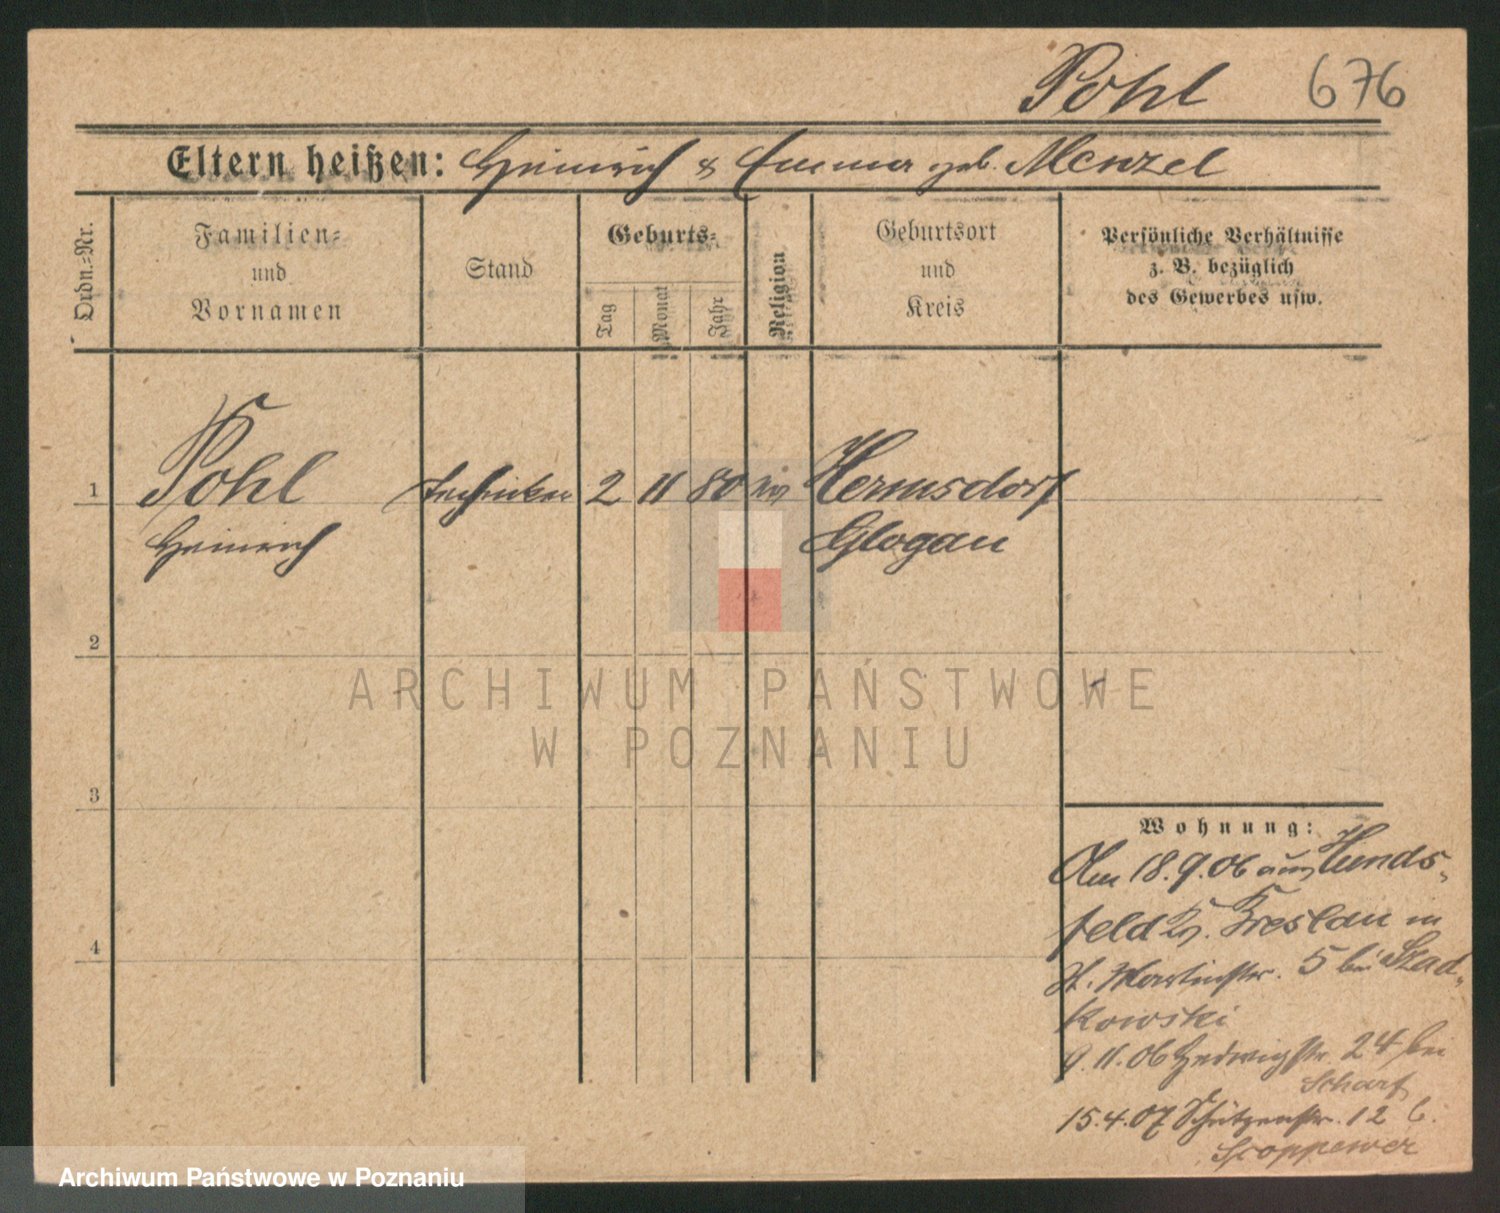 Pohl 676
Eltern heißen: Heinrich & Emma geb. Menzel
Ordn.-Nr.
Familien-
und
Vornamen
Stand
Geburts-
Tag
Monat
Jahr
Religion
Geburtsort
und
Kreis
Persönliche Verhältnisse
z. B. bezüglich
des Gewerbes usw.
1 Pohl Techniker 2 11 80 Hermsdorf
Heinrich Glogau
2
3
4
Wohnung:
Am 18.9.06 aus Hunds-
feld Kr. Breslau in
St. Martinstr. 5 bei Szad-
kowski
9.11.06 Hedwigstr. 24 bei
Scharf
15.4.07 Schützenstr. 12 b.
ARCHIWUM PAŃSTWOWE
W POZNANIU
Archiwum Państwowe w Poznaniu